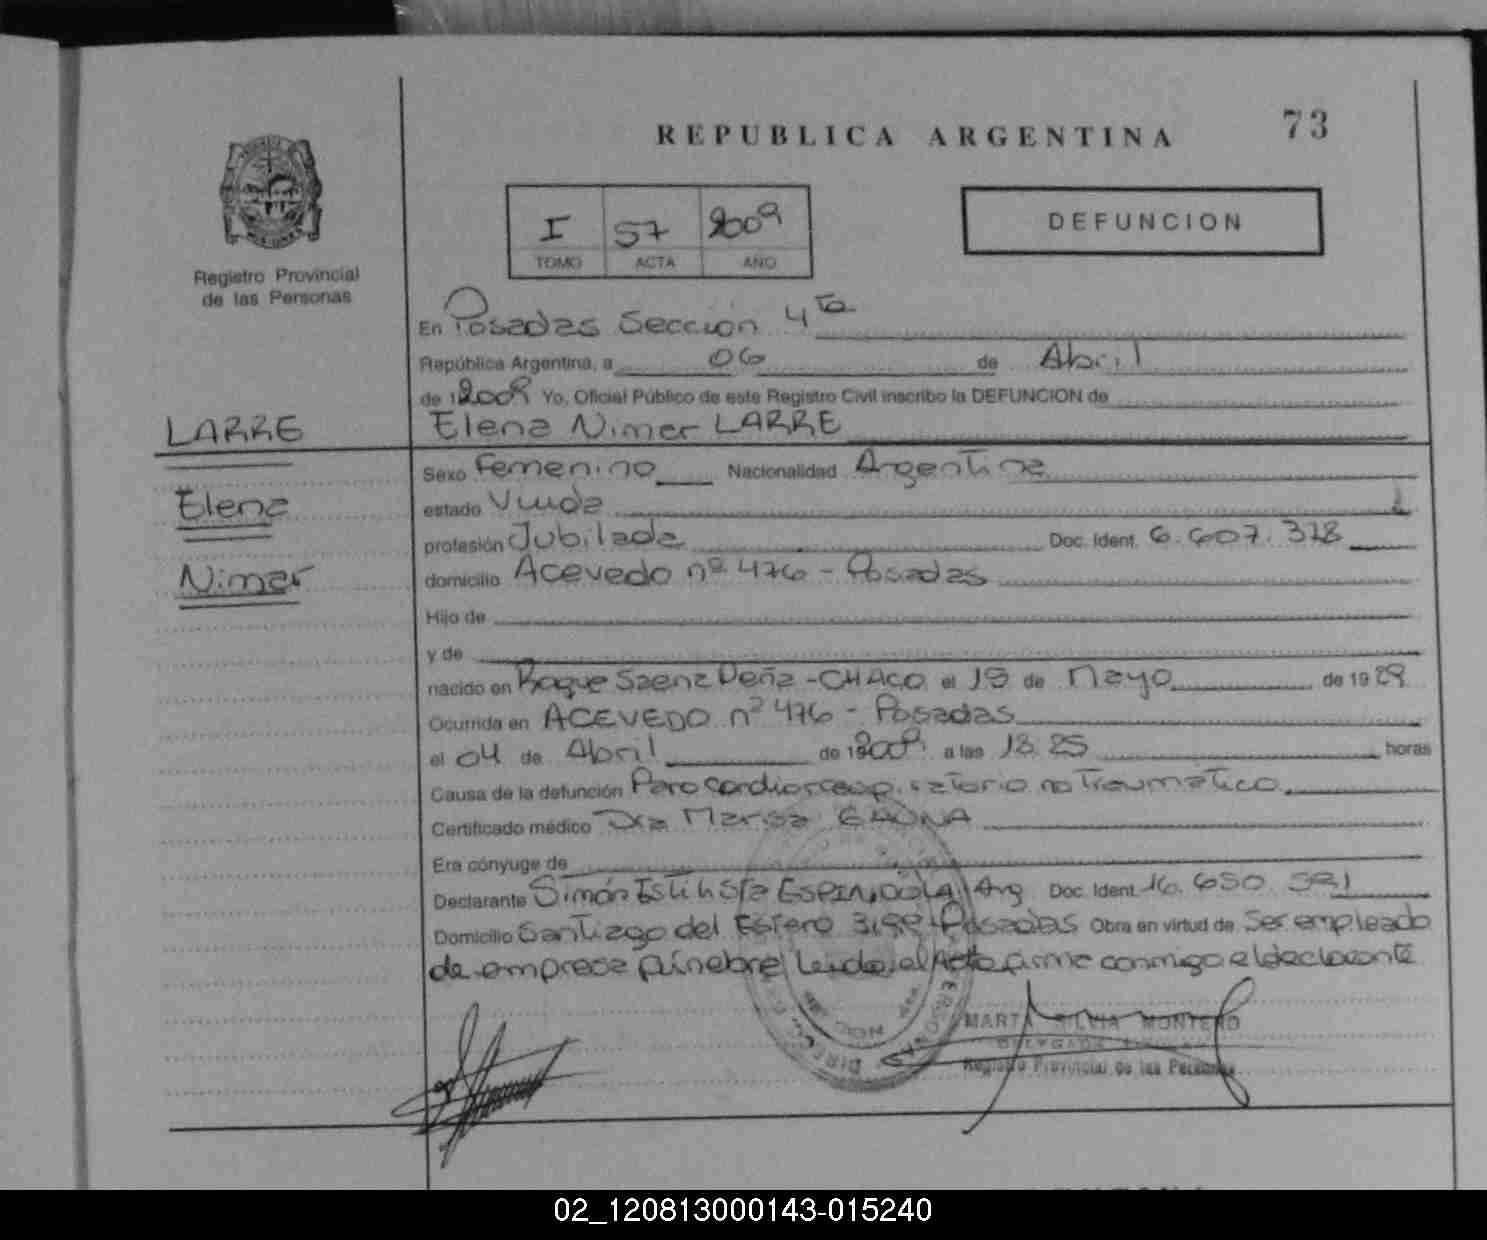 REPUBLICA ARGENTINA
73
Registro Provincial
de las Personas
I 57 2009
TOMO ACTA AÑO
DEFUNCION
En Posadas Sección 4ta
República Argentina, a 06 de Abril
de 2009 Yo, Oficial Público de este Registro Civil inscribo la DEFUNCION de
LARRE
Elena Nimer LARRE
Elena
Nimer
Sexo Femenino Nacionalidad Argentina
estado Viuda
profesión Jubilada Doc. Ident. 6.607.378
domicilio Acevedo nº 476 - Posadas
Hijo de
y de
nacido en Roque Saenz Peña - CHACO el de Mayo de 1929
Ocurrida en ACEVEDO nº 476 - Posadas
el 04 de Abril de 2009 a las horas
Causa de la defunción Paro cardiorrespiratorio no Traumático
Certificado médico Dra Marisa GAONA
Era cónyuge de
Declarante Simón ESPINDOLA, Arg Doc. Ident. 16.650.591
Domicilio Santiago del Estero Posadas Obra en virtud de Ser empleado
de empresa fúnebre Leida el Acta firma conmigo el declarante
MARTA SILVIA MONTERO
Registro Provincial de las Personas
02_120813000143-015240